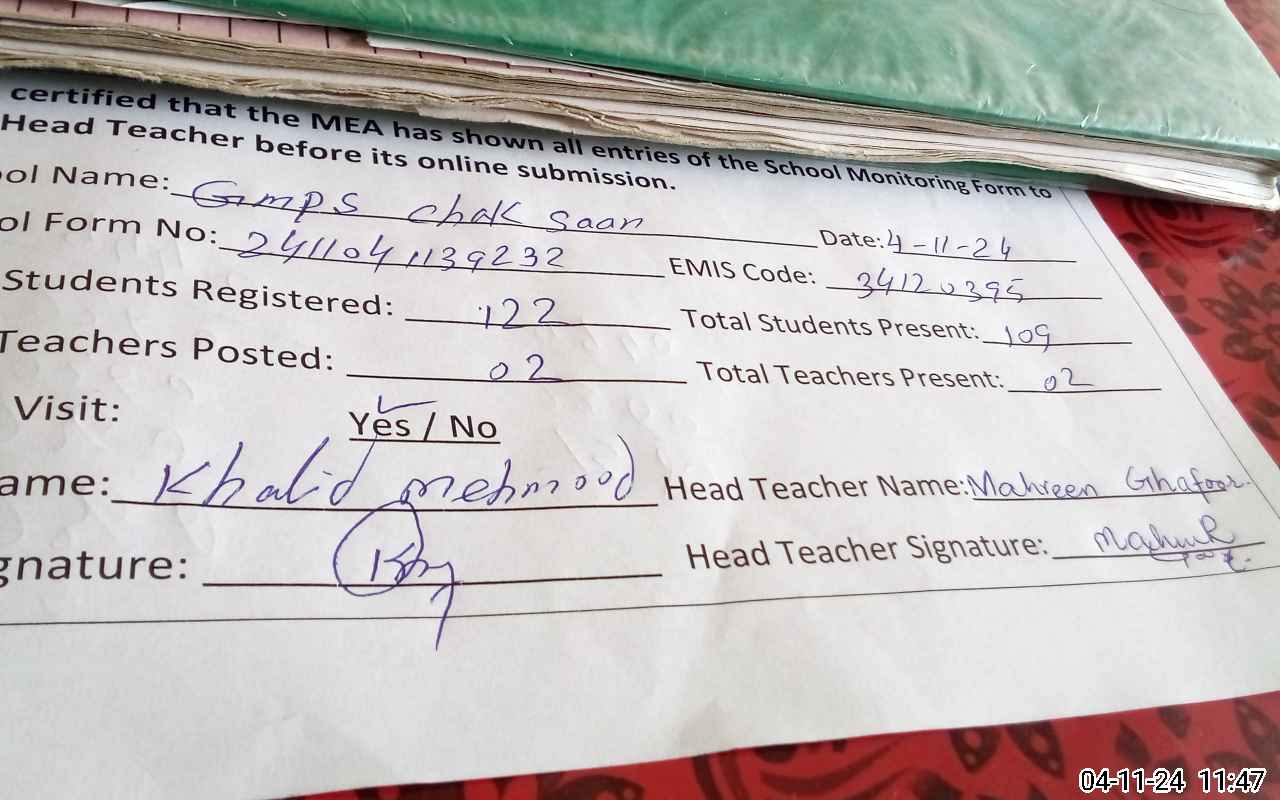 certified that the MEA has shown all entries of the School Monitoring Form to
Head Teacher before its online submission.
ool Name: GMPS chak Saan Date: 4-11-24
ol Form No: 2411041139232 EMIS Code: 34120395
Students Registered: 122 Total Students Present: 109
Teachers Posted: 02 Total Teachers Present: 02
Visit: Yes / No
ame: Khalid mehmood Head Teacher Name: Mahreen Ghafoor.
gnature: Head Teacher Signature:
04-11-24 11:47